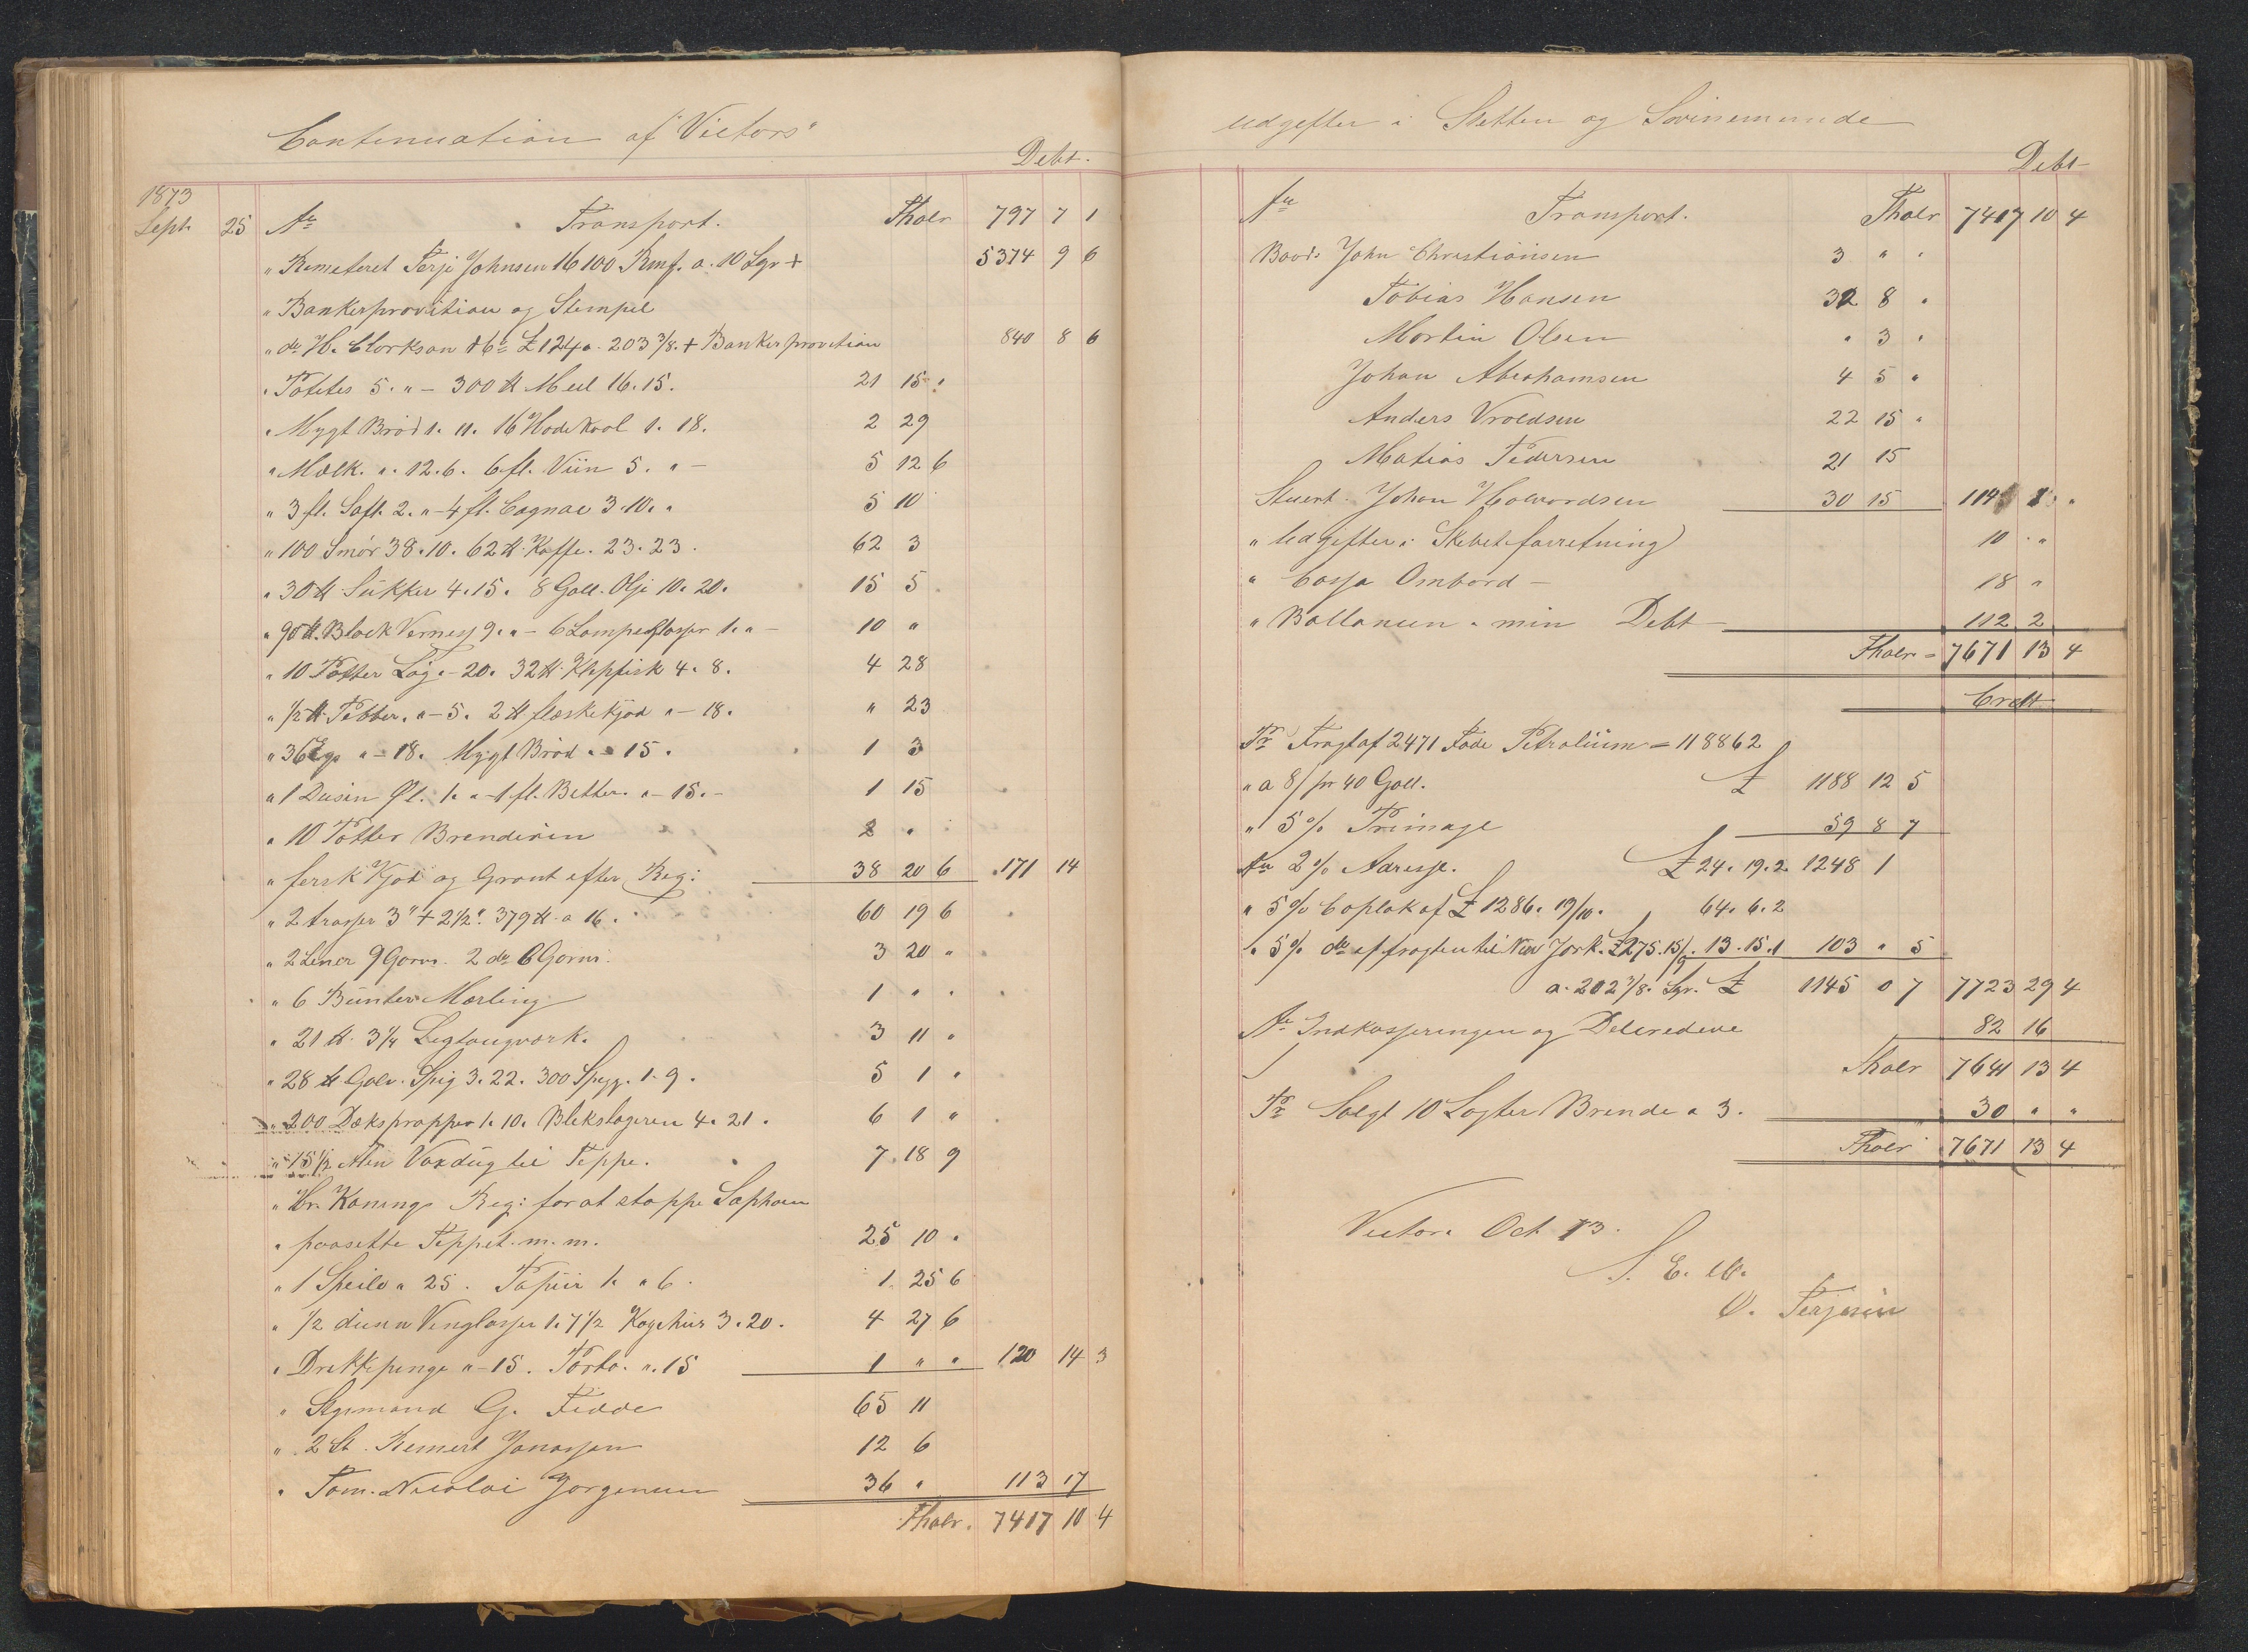 Continuation af "Victors"
Debt.
1873
Sept. 25 An Transport. Thaler 797 7 1
" Remeteret Terje Johnsen 16100 Rmf. a. 10 Sgr + 5374 9 6
" Bankerprovition og Stempel
" do H. Clarkson & Co £ 124 a. 203 3/8. + Bankerprovition 840 8 6
" Potetes 5. " - 300 ℔ Meel 16. 15. 21 15 "
" Mygt Brød 1. 11. 16 Hodekaal 1. 18. 2 29
" Mælk. ". 12. 6. 6 fl. Viin 5. " - 5 12 6
" 3 fl. Saft. 2. " - 4 fl. Cognac 3. 10. " 5 10
" 100 Smør 38. 10. 62 ℔ Kaffe. 23. 23. 62 3
" 30 ℔ Sukker 4. 15. 8 Gall. Olje 10. 20. 15 5
" 90 ℔. Black Vernesj 9. " - 6 Lampeglasser 1. " - 10 "
" 10 Potter Løg. - 20. 32 ℔ Klepfisk 4. 8. 4 28
" 1/2 ℔ Pebber. " - 5. 2 ℔ flæskekjød " - 18. " 23
" 36 Egs " - 18. Mygt Brød " - 15. 1 3
" 1 Dusin Øl. 1. " - 1 fl. Better. " - 15. - 1 15
" 10 Potter Brendeviin 2 "
" fersk Kjød og Grønt efter Reg: 38 20 6 171 14
" 2 trosser 3" + 2 1/2". 379 ℔ a 16. 60 19 6
" 2 Liner 9 Garns. 2 do 6 Garns. 3 20 "
" 6 Bunter Mærling 1 " "
" 21 ℔ 3 1/4 Ligtougværk. 3 11 "
" 28 ℔ Galv. Spig 3. 22. 300 Spigg. 1. 9. 5 1 "
" 200 Dæksproppe 1. 10. Blekslageren 4. 21. 6 1 "
" 15 1/2 Alen Voxdug til Teppe. 7 18 9
" Hr. Konings Reg: for at stoppe Saphaen
" paasette Teppet. m. m. 25 10 "
" 1 Speile " 25. Papiir 1. " 6. 1 25 6
" 1/2 dusin Venglasser 1. 7 1/2 Kogehus 3. 20. 4 27 6
" Drekkepenge " - 15. Porto. ". 15 1 " " 120 14 3
" Stgrmand G. Fedde 65 11
" 2 St. Remert Jonassen 12 6
" Tom. Nicolai Jorgensen 36 " 113 17
Thaler. 7417 10 4
Udgefter i Stettin og Svinemunde
Debt
An Transport. Thaler 7417 10 4
Baads John Christiansen 3 " "
Tobias Hansen 32 8 "
Martin Olsen " 3 "
Johan Abrahamsen 4 5 "
Anders Vroldsen 22 15 "
Matias Pedersen 21 15
Stuert. Johan Halvordsen 30 15 114 1 "
" Udgefter i Skebetsforretning 10 " "
" Cassa Ombord - 18 "
" Ballancen " min Debt 112 2
Thaler = 7671 13 4
Credt
Pr Fragt af 2471 Fade Petrolium = 118862
" a 8/ pr 40 Gall. £ 1188 12 5
" 5 % Primage 59 8 7
An 2 % Adresse. £ 24. 19. 2 1248 1
" 5 % Caplak af £ 1286. 19/10. 64. 6. 2
" 5 % do af fragten til New Jork. £ 275. 15/9. 13. 15. 1 103 " 5
a. 202 3/8. Sgr. £ 1145 0 7 7723 29 4
An Indkasseringen og Delcredere 82 16
Thaler 7641 13 4
Pr Solgt 10 Lagter Brende a 3. 30 " "
Thaler 7671 13 4
Victor. Oct 73.
S. E. et O.
O. Terjesen